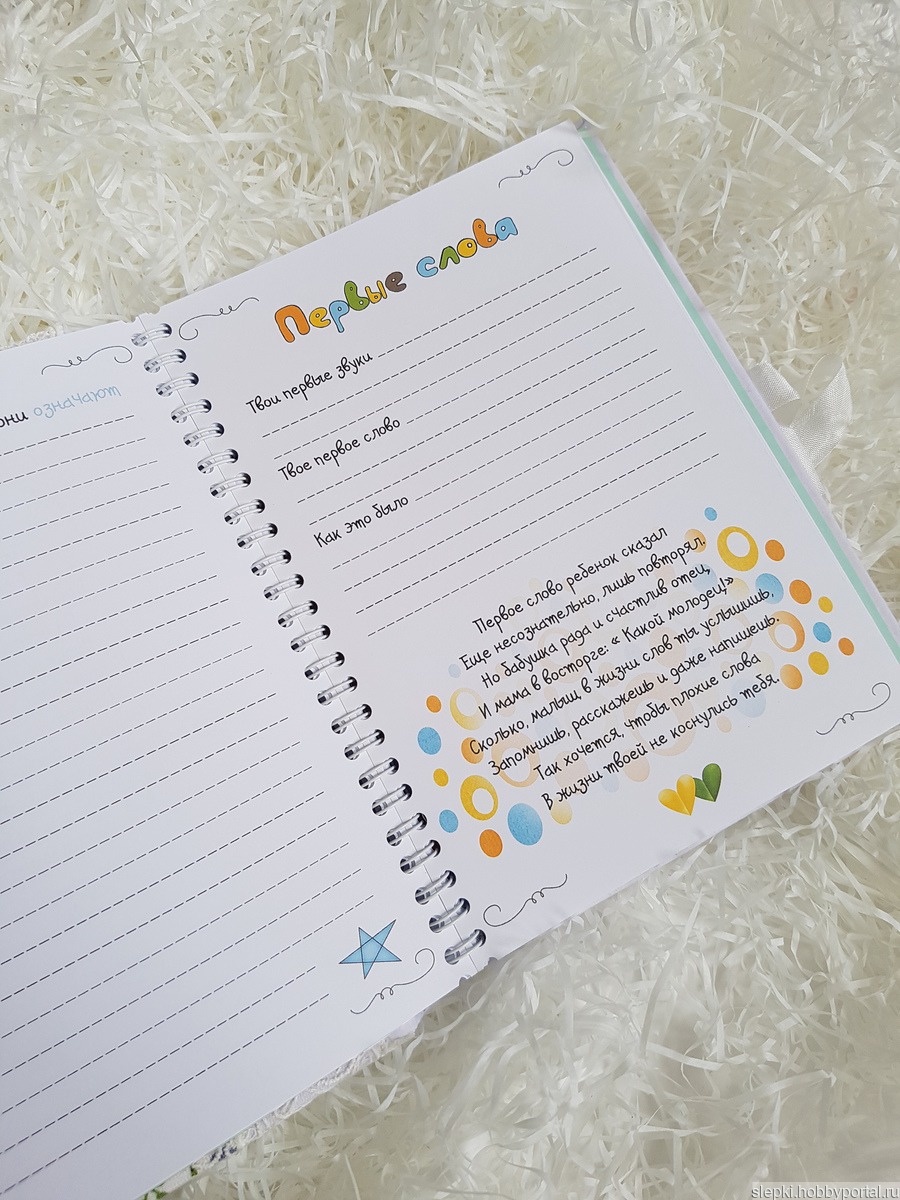 они означают
Первые слова
Твои первые звуки
Твое первое слово
Как это было
Первое слово ребенок сказал
Еще несознательно, лишь повторял.
Но бабушка рада и счастлив отец,
И мама в восторге: « Какой молодец!»
Сколько, малыш, в жизни слов ты услышишь,
Запомнишь, расскажешь и даже напишешь.
Так хочется, чтобы плохие слова
В жизни твоей не коснулись тебя.
slepki.hobbyportal.ru